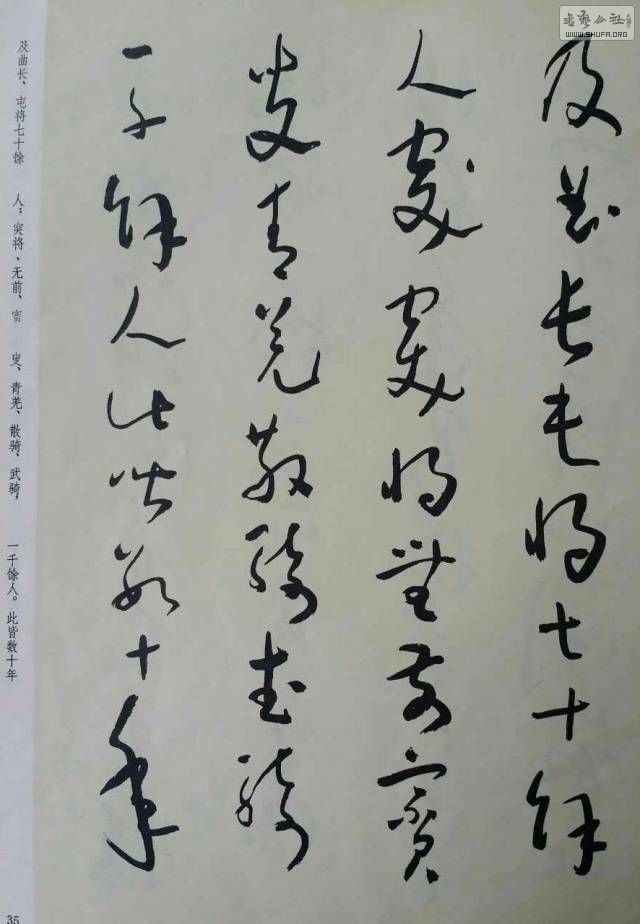 书艺公社
WWW.SHUFA.ORG
及曲長屯將七十餘
人突將無前賨
叟青羌散騎武騎
一千餘人此皆數十年
及曲长、屯将七十馀 人;突将、无前、賨 叟、青羌、散骑、武骑, 一千馀人。此皆数十年
35